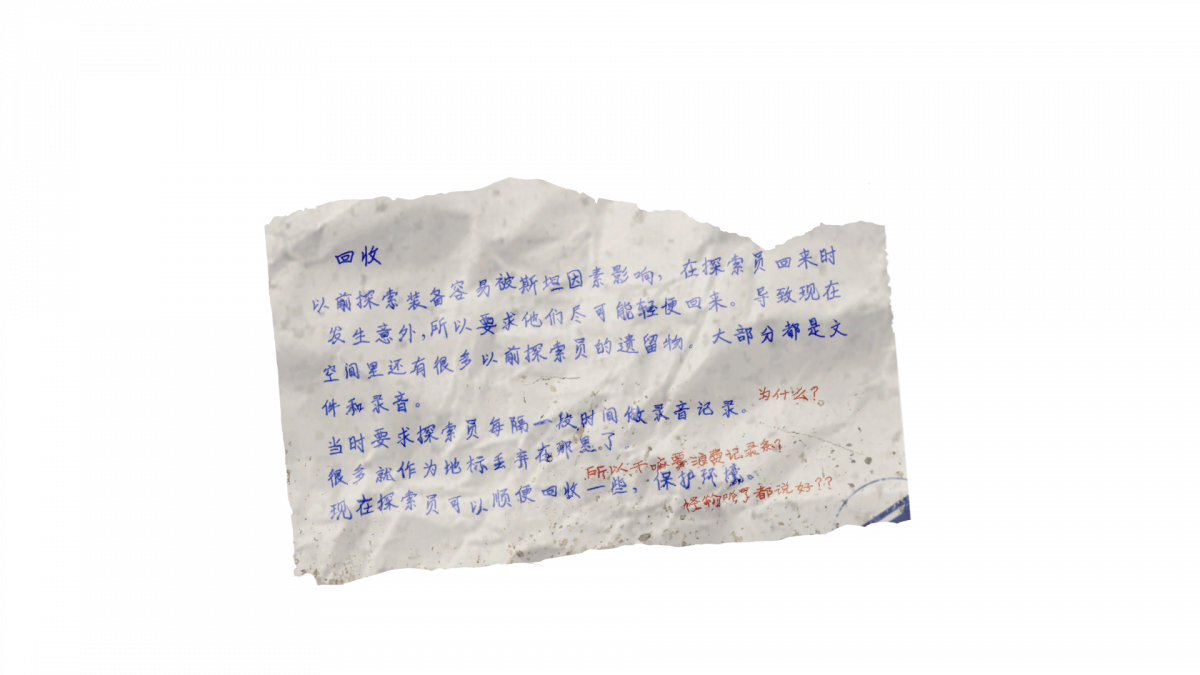 回收
以前探索装备容易被斯坦因素影响，在探索员回来时
发生意外，所以要求他们尽可能轻便回来。导致现在
空间里还有很多以前探索员的遗留物。大部分都是文
件和录音。
为什么？
当时要求探索员每隔一段时间做录音记录。
很多就作为地标丢弃在那里了。
所以干嘛要浪费记录条？
现在探索员可以顺便回收一些，保护环境。
怪物听了都说好？？